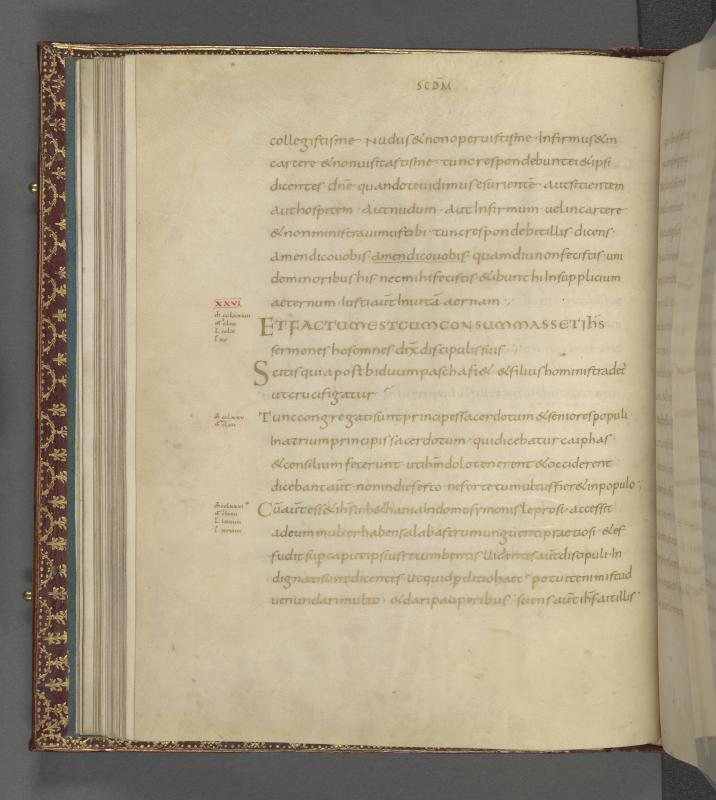 SCDM
collegistisme · Nudus & non operuistisme · Infirmus & in
carcere & non uisitastisme · tunc respondebunt ei & ipsi
dicentes dne quando te uidimus esurientē · aut sitientem
aut hospitem · aut nudum · aut Infirmum · uel in carcere
& non ministrauimus tibi · tunc respondebit illis dicens ·
amen dico uobis · amen dico uobis · quamdiu non fecistis uni
de minoribus his · nec mihi fecistis · & ibunt hi In supplicium
aeternum · Iusti aūt In uitā aernam ·,
XXVI
ET FACTUM EST CUM CONSUMMASSET IHS
sermones hos omnes · dix discipulis suis ·
Scitis quia post biduum pascha fi& · & filius hominis trad&
ut crucifigatur
Tunc congregati sunt principes sacerdotum & seniores populi
In atrium principis sacerdotum · qui dicebatur caiphas ·
& consilium fecerunt · ut ihm dolo tenerent & occiderent
dicebant aūt · non in die festo · ne forte tumultus fier& in populo ;
Cū aūt ess& ihs in b&hania In domo simonis leprosi · accessit
ad eum mulier habens alabastrum unguenti praetiosi · & ef
fudit sup caput ipsius recumbentis · Uidentes aūt discipuli · In
dignati sunt dicentes · Ut quid pditio haec · potuit enim istud
uenundari multo · & dari pauperibus · sciens aūt ihs ait illis ·